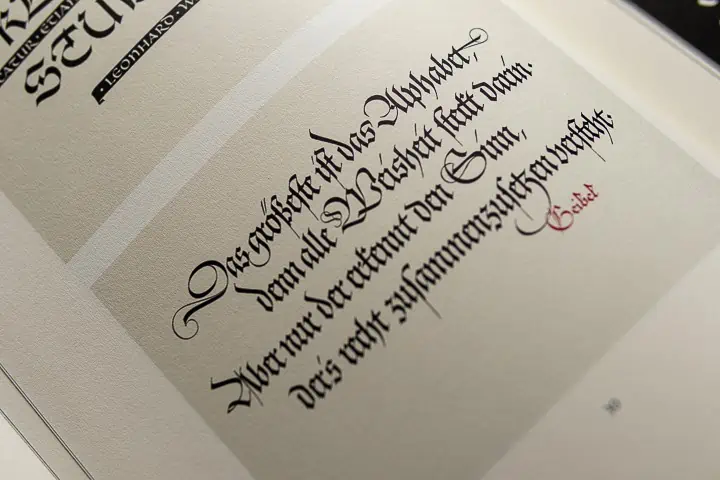 · LEONHARD · W
Das größeste ist das Alphabet,
denn alle Weisheit steckt darin.
Aber nur der erkennt den Sinn,
der's recht zusammenzusetzen versteht.
Geibel